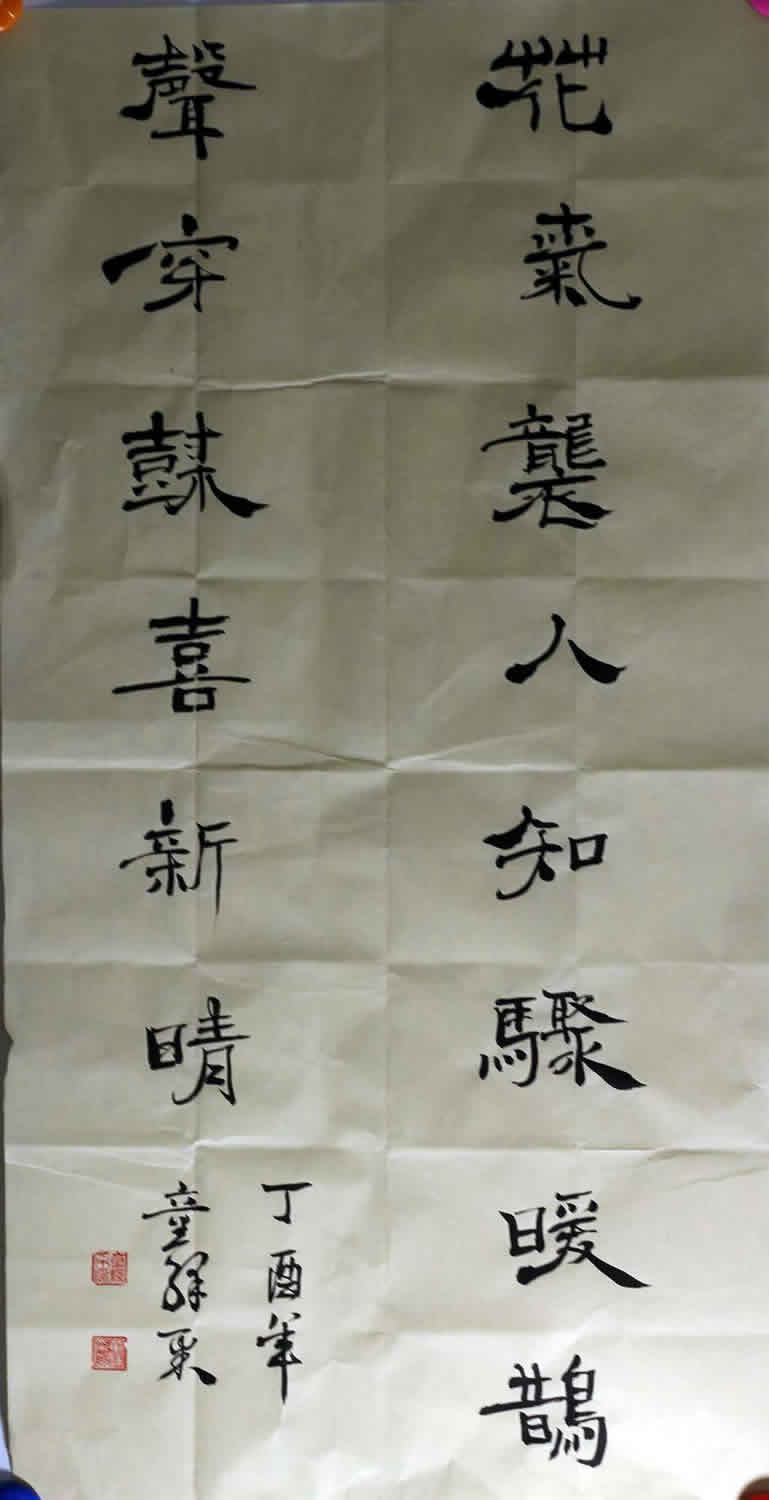 花氣襲人知驟暖鵲
聲穿樹喜新晴
丁酉年
童